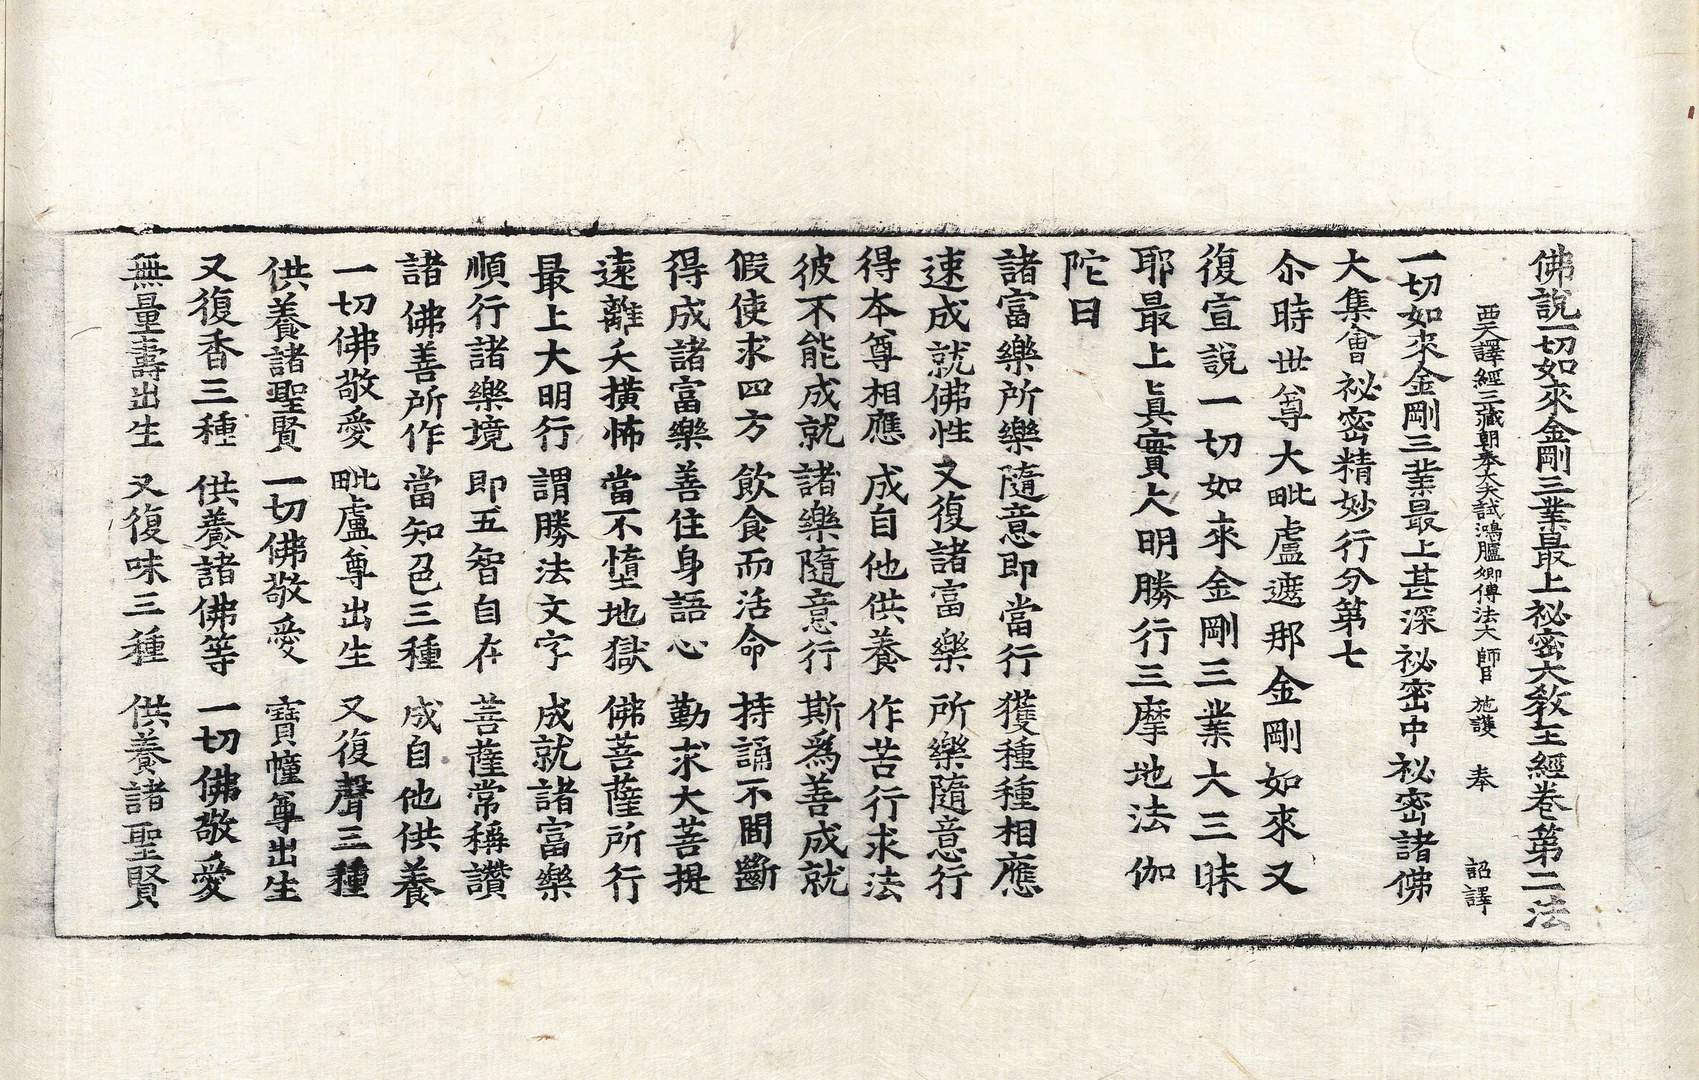 佛說一切如來金剛三業最上祕密大教王經卷第二法
西天譯經三藏朝奉大夫試鴻臚卿傳法大師臣施護奉 詔譯
一切如來金剛三業最上甚深祕密中祕密諸佛
大集會祕密精妙行分第七
尒時世尊大毗盧遮那金剛如來又
復宣說一切如來金剛三業大三昧
耶最上真實大明勝行三摩地法伽
陀曰
諸富樂所樂隨意即當行獲種種相應
速成就佛性又復諸富樂所樂隨意行
得本尊相應成自他供養作苦行求法
彼不能成就諸樂隨意行斯為善成就
假使求四方飲食而活命持誦不間斷
得成諸富樂善住身語心勤求大菩提
遠離夭橫怖當不墮地獄佛菩薩所行
最上大明行謂勝法文字成就諸富樂
順行諸樂境即五智自在菩薩常稱讚
諸佛善所作當知色三種成自他供養
一切佛敬愛毗盧尊出生又復聲三種
供養諸聖賢一切佛敬愛寶幢尊出生
又復香三種供養諸佛等一切佛敬愛
無量壽出生又復味三種供養諸聖賢